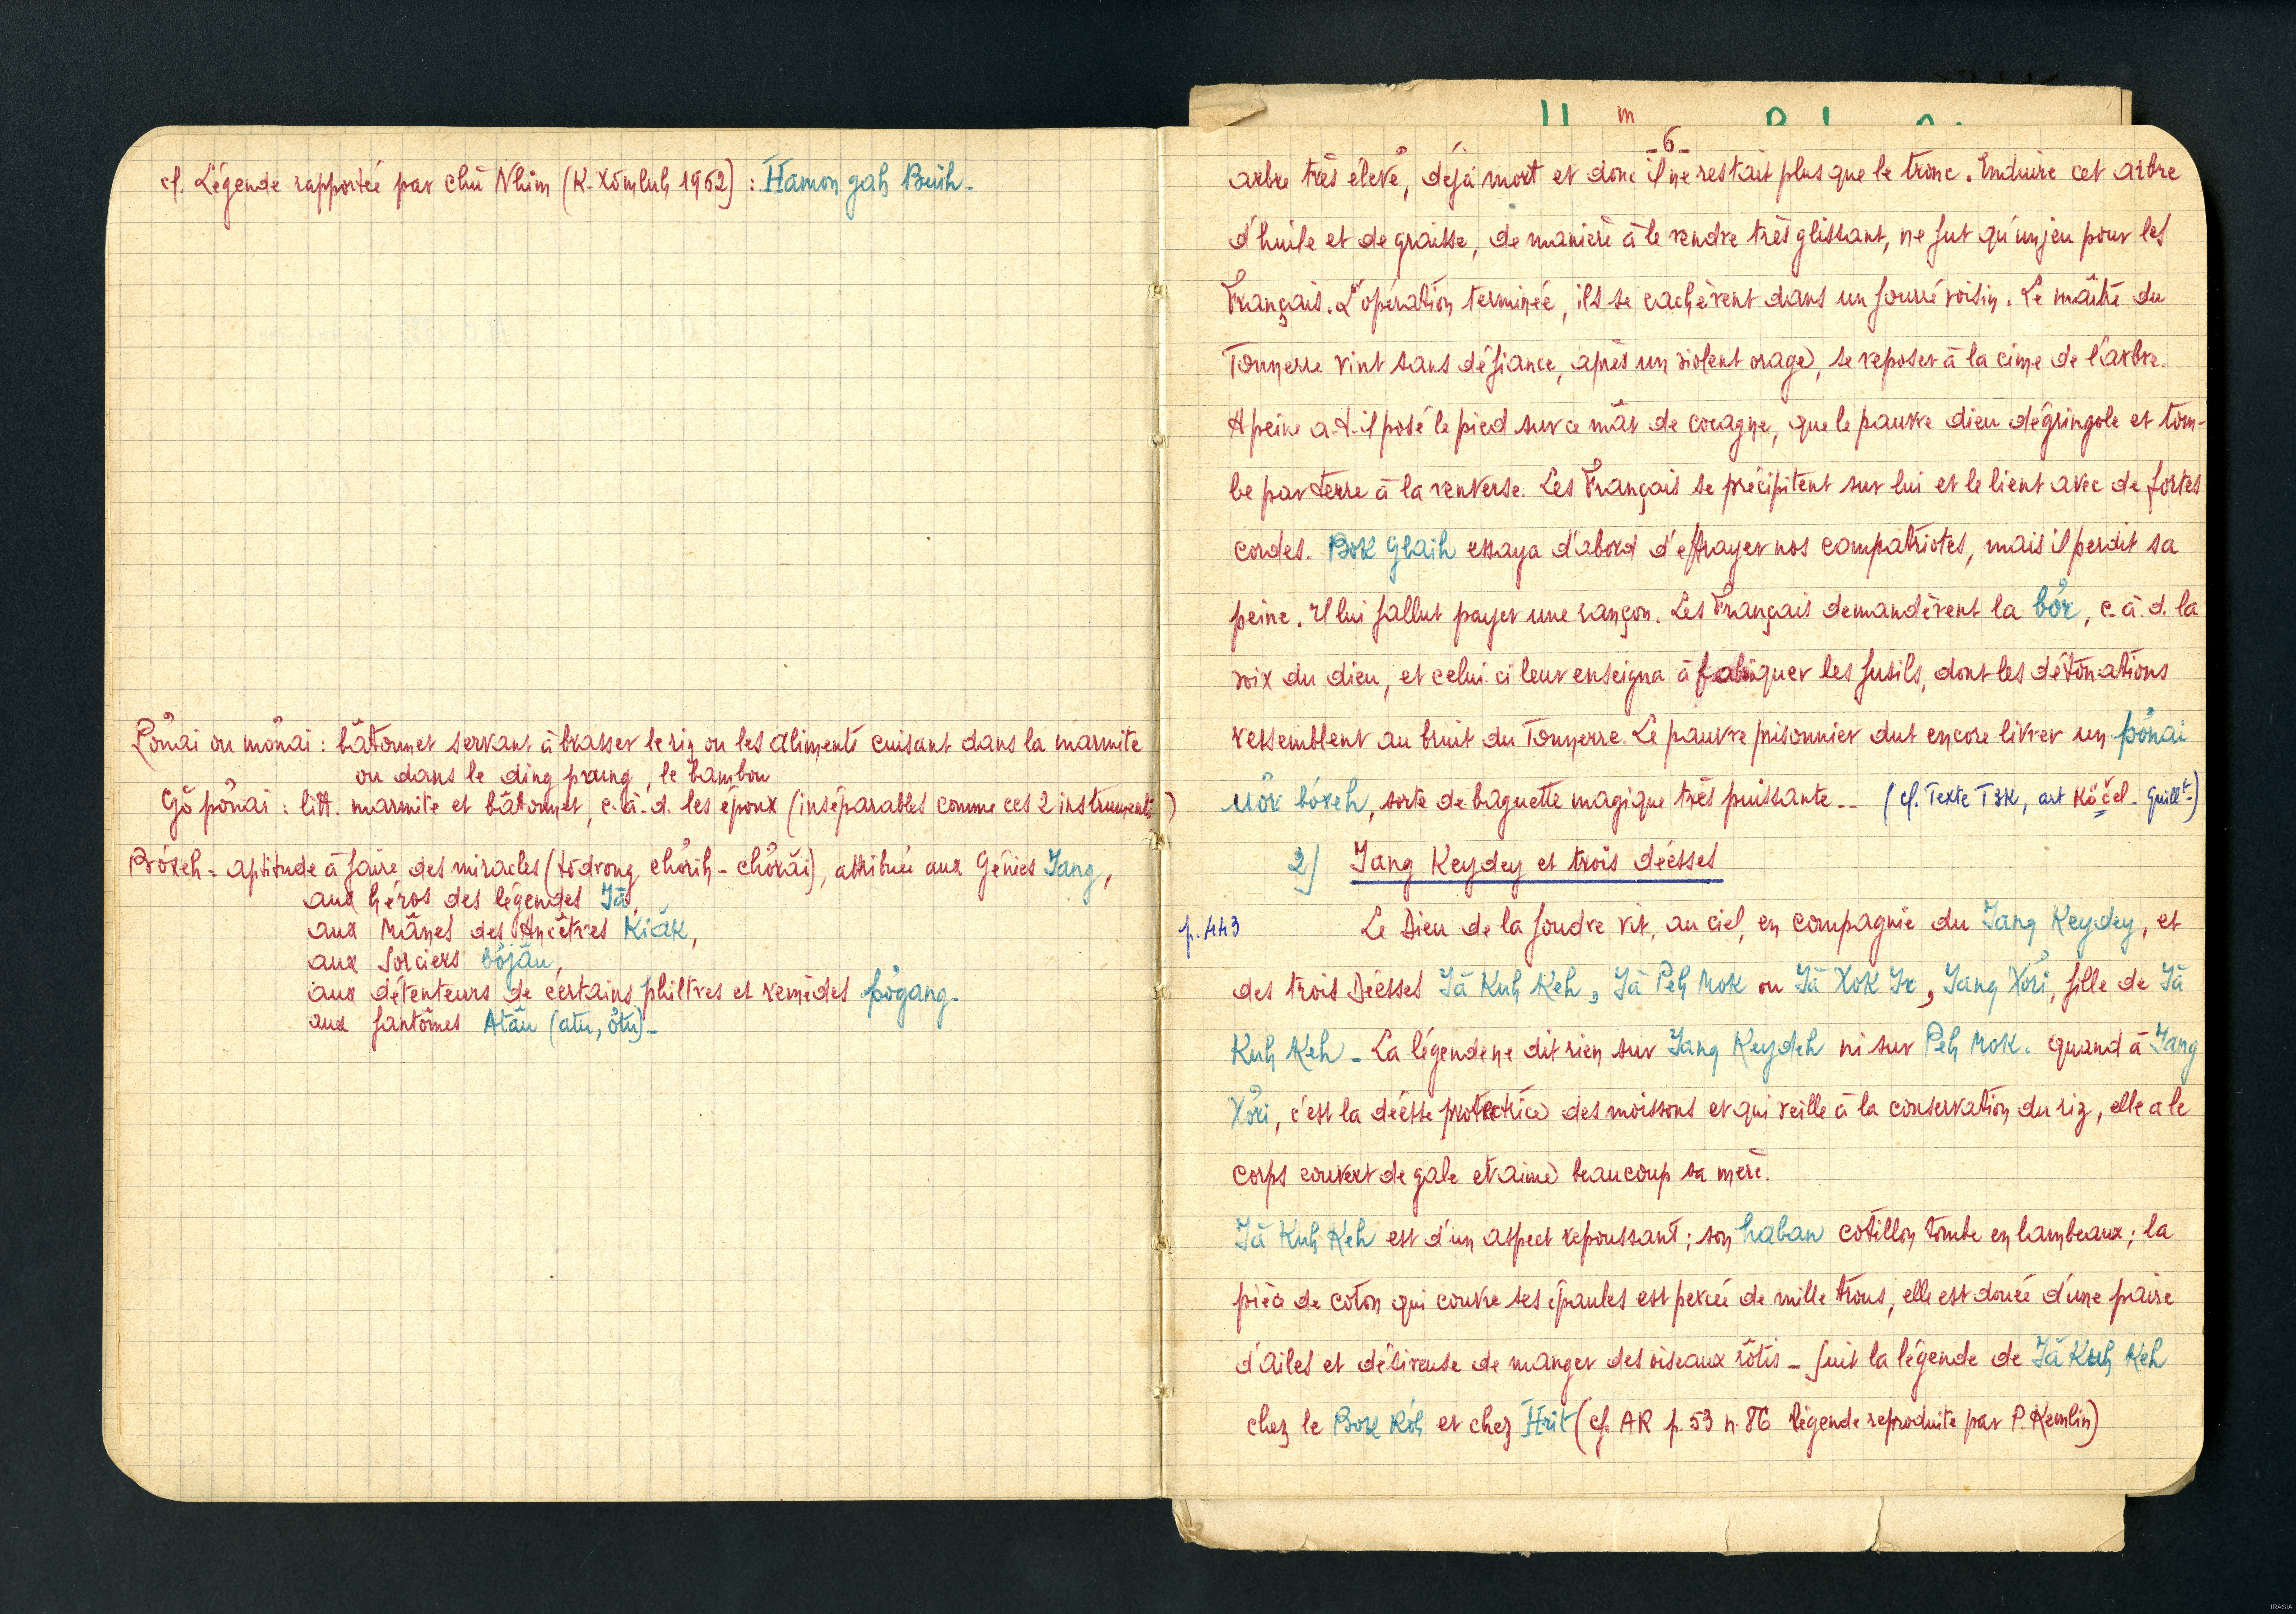 cf. Légende rapportée par chú Nhim (K. Xömluh 1962) : Hamon gah Buih -
Pơnai ou mơnai : bâtonnet servant à brasser le riz ou les aliments cuisant dans la marmite
ou dans le ding prung, le bambou
Gŏ pơnai : litt. marmite et bâtonnet, c.-à-d. les époux (inséparables comme ces 2 instruments)
Bơxeh - aptitude à faire des miracles (tơdrong chơrih - chơrăi), attribuée aux Génies Jang,
aux héros des légendes Jă,
aux Mânes des Ancêtres Kiăk,
aux Sorciers bơjâu,
aux détenteurs de certains philtres et remèdes pơgang.
aux fantômes Atâu (atu, ơtu) -
- 6 -
arbre très élevé, déjà mort et donc il ne restait plus que le tronc. Enduire cet arbre
d'huile et de graisse, de manière à le rendre très glissant, ne fut qu'un jeu pour les
Français. L'opération terminée, ils se cachèrent dans un fourré voisin. Le maître du
Tonnerre vint sans défiance, après un violent orage, se reposer à la cime de l'arbre.
A peine a-t-il posé le pied sur ce mât de cocagne, que le pauvre dieu dégringole et tom-
be par terre à la renverse. Les Français se précipitent sur lui et le lient avec de fortes
cordes. Bok Glaih essaya d'abord d'effrayer nos compatriotes, mais il perdit sa
peine. Il lui fallut payer une rançon. Les Français demandèrent la bơr, c.à.d. la
voix du dieu, et celui-ci leur enseigna à fabriquer les fusils, dont les détonations
ressemblent au bruit du Tonnerre. Le pauvre prisonnier dut encore livrer un pơnai
uơr bơxeh, sorte de baguette magique très puissante -- (cf. Texte TBK, art Köčel - Guillt-)
2) Jang Keydey et trois déesses
p. 443
Le Dieu de la foudre vit, au ciel, en compagnie du Jang Keydey, et
des trois Déesses Jă Kuh Keh, Jă Peh Mok ou Jă Xok Ir, Jang Xơri, fille de Jă
Kuh Keh - La légende ne dit rien sur Jang Keydeh ni sur Peh Mok. quand à Jang
Xơri, c'est la déesse protectrice des moissons et qui veille à la conservation du riz, elle a le
corps couvert de gale et aime beaucoup sa mère.
Jă Kuh Keh est d'un aspect repoussant ; son haban cotillon tombe en lambeaux ; la
pièce de coton qui couvre ses épaules est percée de mille trous, elle est douée d'une paire
d'ailes et désireuse de manger des oiseaux rôtis - suit la légende de Jă Kuh Keh
chez le Bok Rơh et chez Hrit (cf. AR p. 53 n. 86 légende reproduite par P. Kemlin)
IRASIA